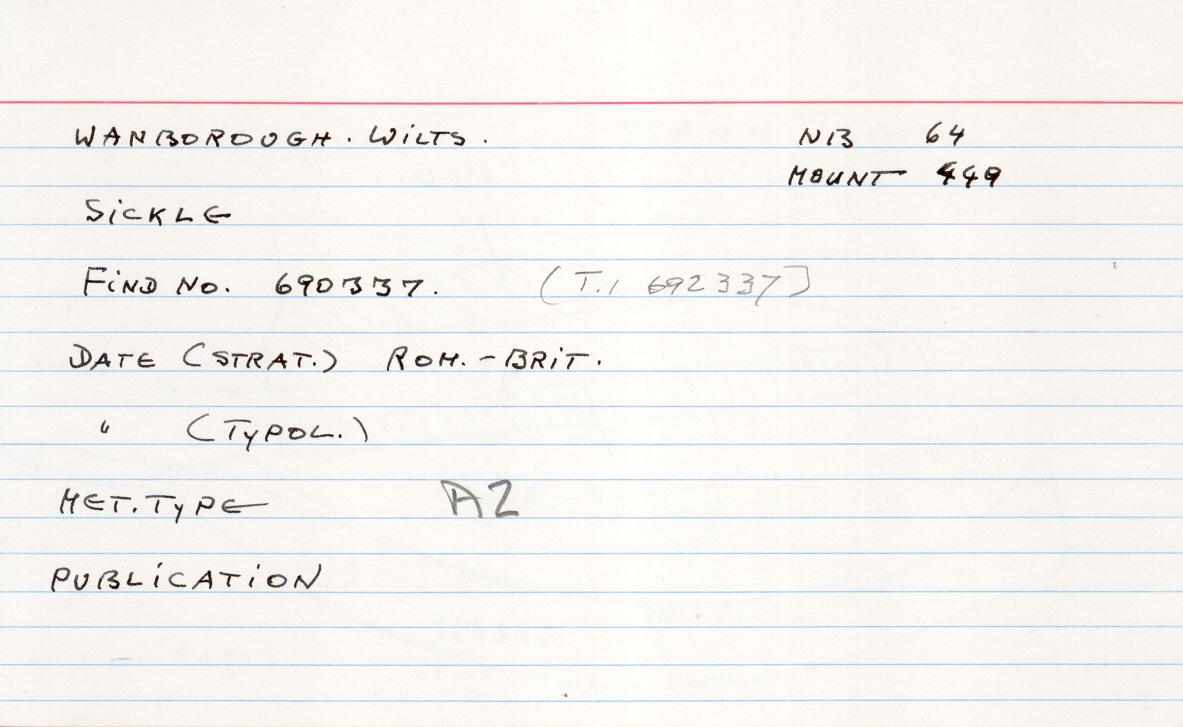 WANBOROUGH. WILTS. NB 64
MOUNT 449
SICKLE
FIND NO. 690337. (T.1 692337)
DATE (STRAT.) ROM.-BRIT.
" (TYPOL.)
MET. TYPE A2
PUBLICATION